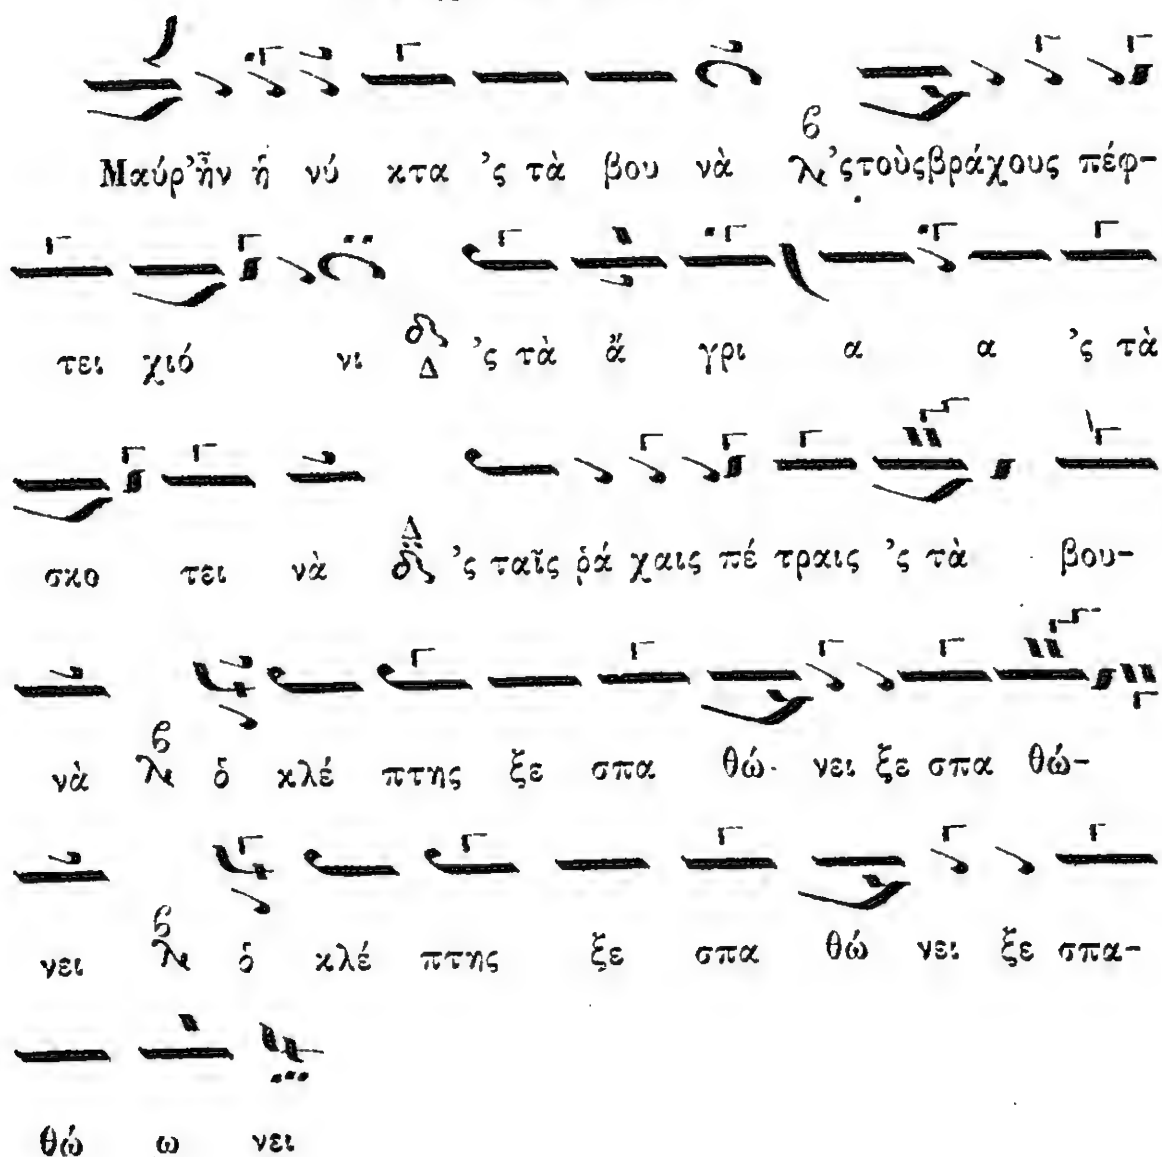 Μαύρ' ἦν ἡ νύ κτα 'ς τὰ βου νὰ 'ς τοὺς βράχους πέφ-
τει χιό νι Δ 'ς τὰ ἄ γρι α α 'ς τὰ
σκο τει νὰ Δ 'ς ταῖς ῥά χαις πέ τραις 'ς τὰ βου-
νὰ ὁ κλέ πτης ξε σπα θώ. νει ξε σπα θώ-
νει ὁ κλέ πτης ξε σπα θώ νει ξε σπα-
θώ ω νει